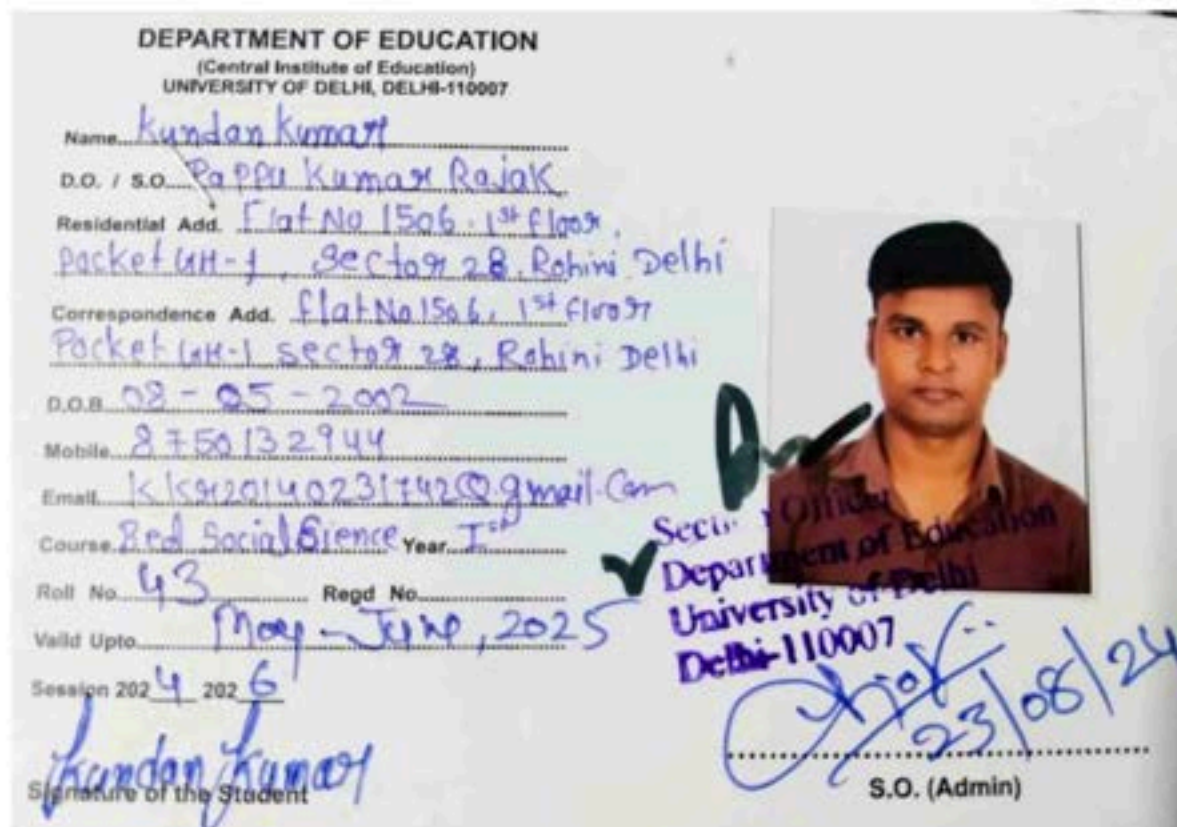 DEPARTMENT OF EDUCATION
(Central Institute of Education)
UNIVERSITY OF DELHI, DELHI-110007
Name Kundan Kumar
D.O. / S.O. Pappu Kumar Rajak
Residential Add. Flat No 1506 . 1st floor,
Pocket GH-1, Sector 28, Rohini Delhi
Correspondence Add. flat No 1506, 1st floor
Pocket GH-1 sector 28, Rohini Delhi
D.O.B 08-05-2002
Mobile 8750132944
Email kkr20140231742@gmail.com
Course Bed Social Sience Year Ist
Roll No 43 Regd No
Valid Upto May-June, 2025
Session 2024 2026
Kundan Kumar
Signature of the Student
Officer
Department of Education
University of Delhi
Delhi-110007
23/08/24
S.O. (Admin)